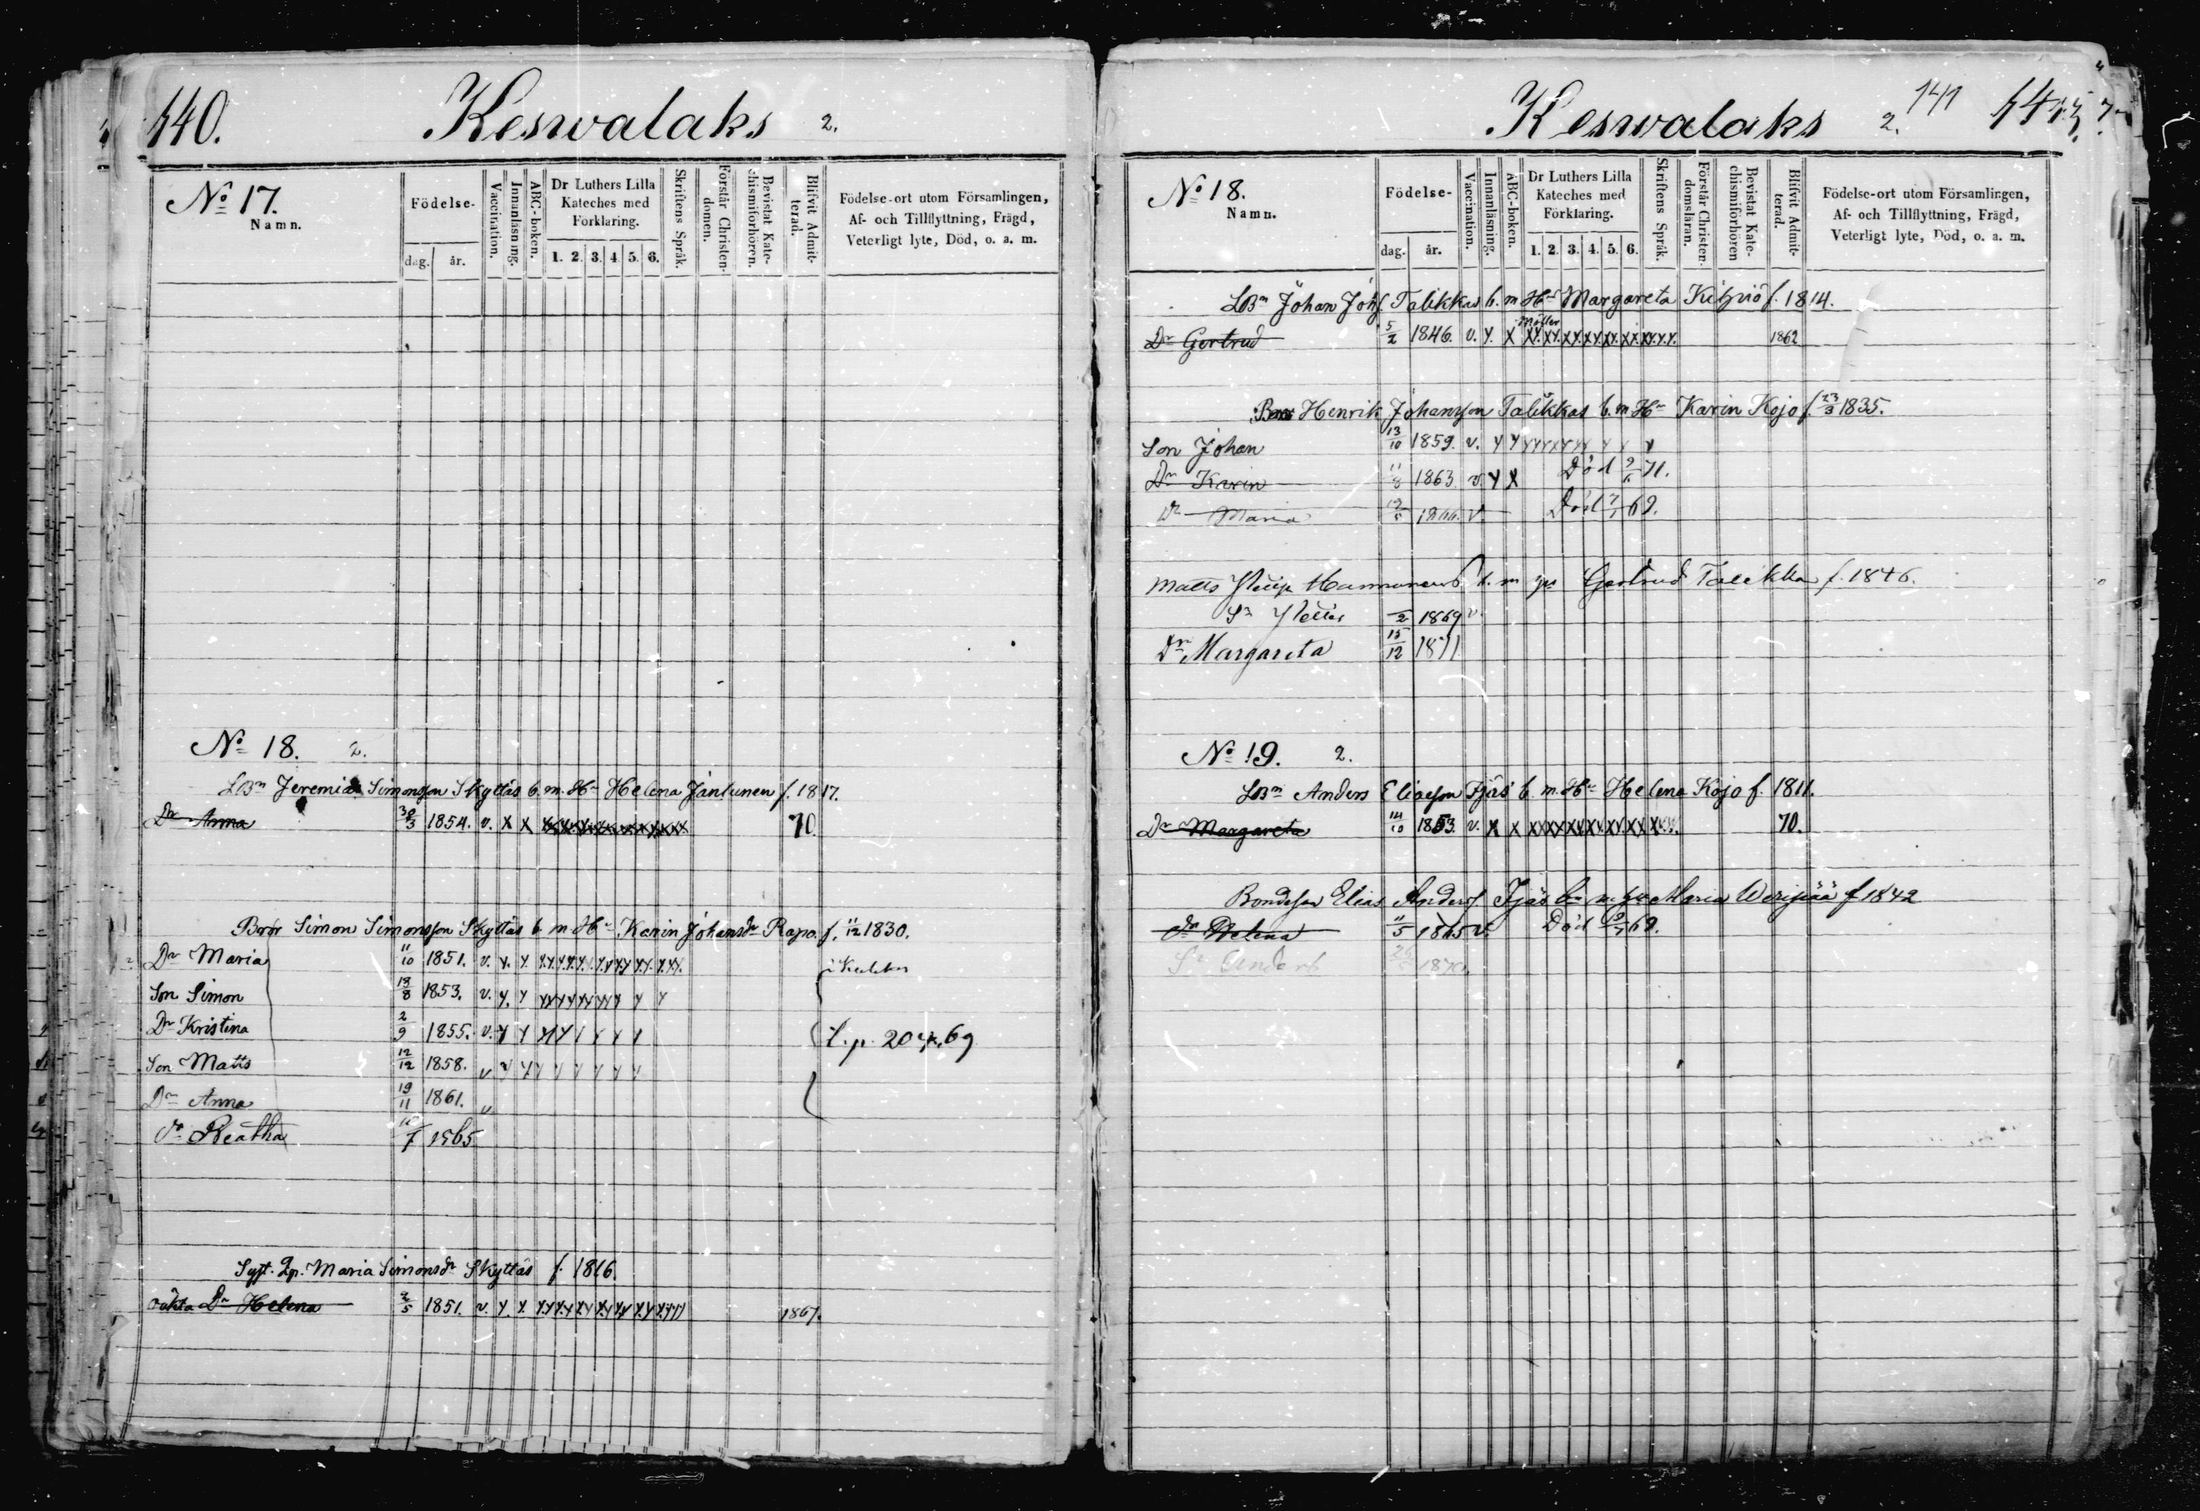 140.
Keswalaks 2.
No 17.
Namn.
Födelse-
dag. år.
Vaccination.
Innanläsning.
ABC-boken.
Dr Luthers Lilla Kateches med Förklaring.
1. 2. 3. 4. 5. 6.
Skriftens Språk.
Förstår Christendomen.
Bevistat Katechismiförhören.
Blifvit Admitterad.
Födelse-ort utom Församlingen,
Af- och Tillflyttning, Frägd,
Veterligt lyte, Död, o. a. m.
No 18. 2.
LBn Jeremias Simonsson Skyttäs b. m. Hn Helena Jäntunen f. 1817.
Dr Anna 30/3 1854. v. x x 70.
Bror Simon Simonsson Skyttäs b m Hn Karin Johansdr Rapo. f. 11/12 1830.
Dr Maria 11/10 1851. v. x. x.
Son Simon 18/8 1853. v. x. x
Dr Kristina 2/9 1855. v. x x
Son Matts 12/12 1858. v
Dr Anna 19/11 1861. v
Dr Beatha /7 1865
Syst. Maria Simonsdr Skyttäs f. 1816.
oäkta Dr Helena 2/5 1851. v. x. x. 1867.
Keswalaks 2. 141
No 18.
Namn.
Födelse-
dag. år.
Vaccination.
Innanläsning.
ABC-boken.
Dr Luthers Lilla Kateches med Förklaring.
1. 2. 3. 4. 5. 6.
Skriftens Språk.
Förstår Christendomsläran.
Bevistat Katechismiförhören
Blifvit Admitterad.
Födelse-ort utom Församlingen,
Af- och Tillflyttning, Frägd,
Veterligt lyte, Död, o. a. m.
LBn Johan Johs. Talikkas b. m Hu Margareta f. 1814.
Dr Gertrud 5/2 1846. v. x. x 1862
Henrik Johansson Talikkas b. m Hu Karin Kojo f. 23/3 1835.
Son Johan 13/10 1859. v. x x
Dr Karin 11/8 1863 v. x x Död 71.
Dr Maria 1866. v. Död 69.
Matts b. m Gertrud Talikka f. 1846.
1869 v.
Dr Margareta 15/12 1871
No 19. 2.
LBn Anders Eliasson b. m. Hu Helena Kojo f. 1811.
Dr Margareta 14/10 1853. v. x x 70.
Bondeson Elias Anders m Maria f 1842
Dr Helena 11/5 1865 v. Död 69.
Sn Anders 1870.